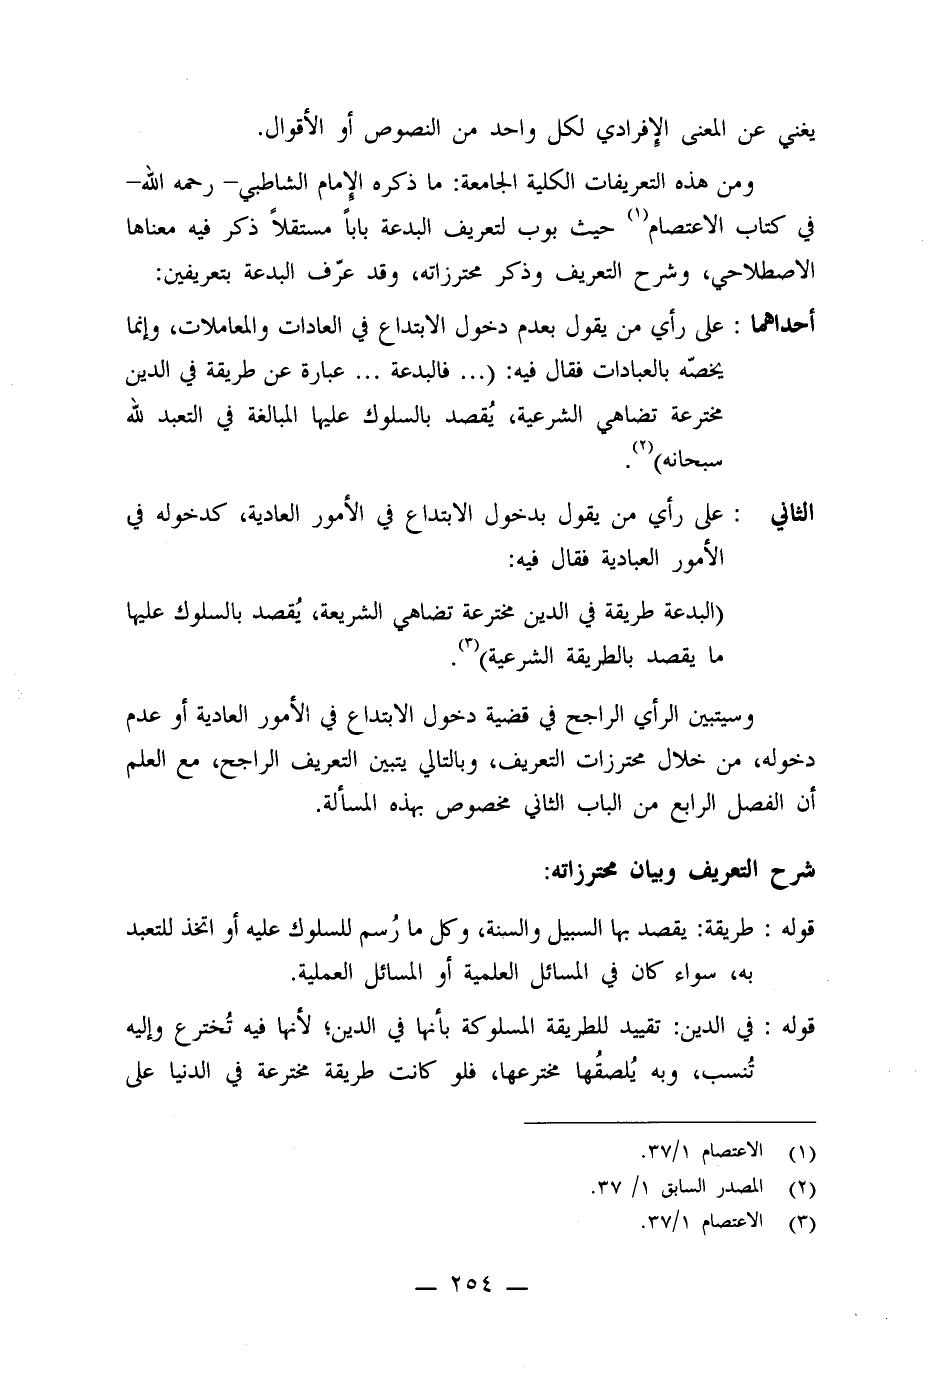 يغني عن المعنى الإفرادي لكل واحد من النصوص أو الأقوال.
ومن هذه التعريفات الكلية الجامعة: ما ذكره الإمام الشاطبي– رحمه الله–
في كتاب الاعتصام(١) حيث بوب لتعريف البدعة باباً مستقلاً ذكر فيه معناها
الاصطلاحي، وشرح التعريف وذكر محترزاته، وقد عرّف البدعة بتعريفين:
أحداهما : على رأي من يقول بعدم دخول الابتداع في العادات والمعاملات، وإنما
يخصّه بالعبادات فقال فيه: (... فالبدعة ... عبارة عن طريقة في الدين
مخترعة تضاهي الشرعية، يُقصد بالسلوك عليها المبالغة في التعبد لله
سبحانه)(٢).
الثاني : على رأي من يقول بدخول الابتداع في الأمور العادية، كدخوله في
الأمور العبادية فقال فيه:
(البدعة طريقة في الدين مخترعة تضاهي الشريعة، يُقصد بالسلوك عليها
ما يقصد بالطريقة الشرعية)(٣).
وسيتبين الرأي الراجح في قضية دخول الابتداع في الأمور العادية أو عدم
دخوله، من خلال محترزات التعريف، وبالتالي يتبين التعريف الراجح، مع العلم
أن الفصل الرابع من الباب الثاني مخصوص بهذه المسألة.
شرح التعريف وبيان محترزاته:
قوله : طريقة: يقصد بها السبيل والسنة، وكل ما رُسم للسلوك عليه أو اتخذ للتعبد
به، سواء كان في المسائل العلمية أو المسائل العملية.
قوله : في الدين: تقييد للطريقة المسلوكة بأنها في الدين؛ لأنها فيه تُخترع وإليه
تُنسب، وبه يُلصقُها مخترعها، فلو كانت طريقة مخترعة في الدنيا على
(١) الاعتصام ٣٧/١.
(٢) المصدر السابق ١/ ٣٧.
(٣) الاعتصام ٣٧/١.
— ٢٥٤ —